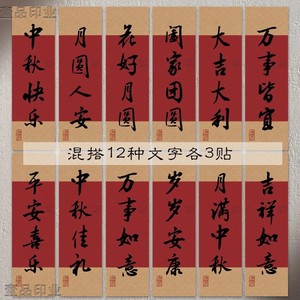 壹品印业
壹品印业
中秋快乐
月圆人安
花好月圆
阖家团圆
大吉大利
万事皆宜
混搭12种文字各3贴
平安喜乐
中秋佳礼
万事如意
岁岁安康
月满中秋
吉祥如意
壹品印业
壹品印业